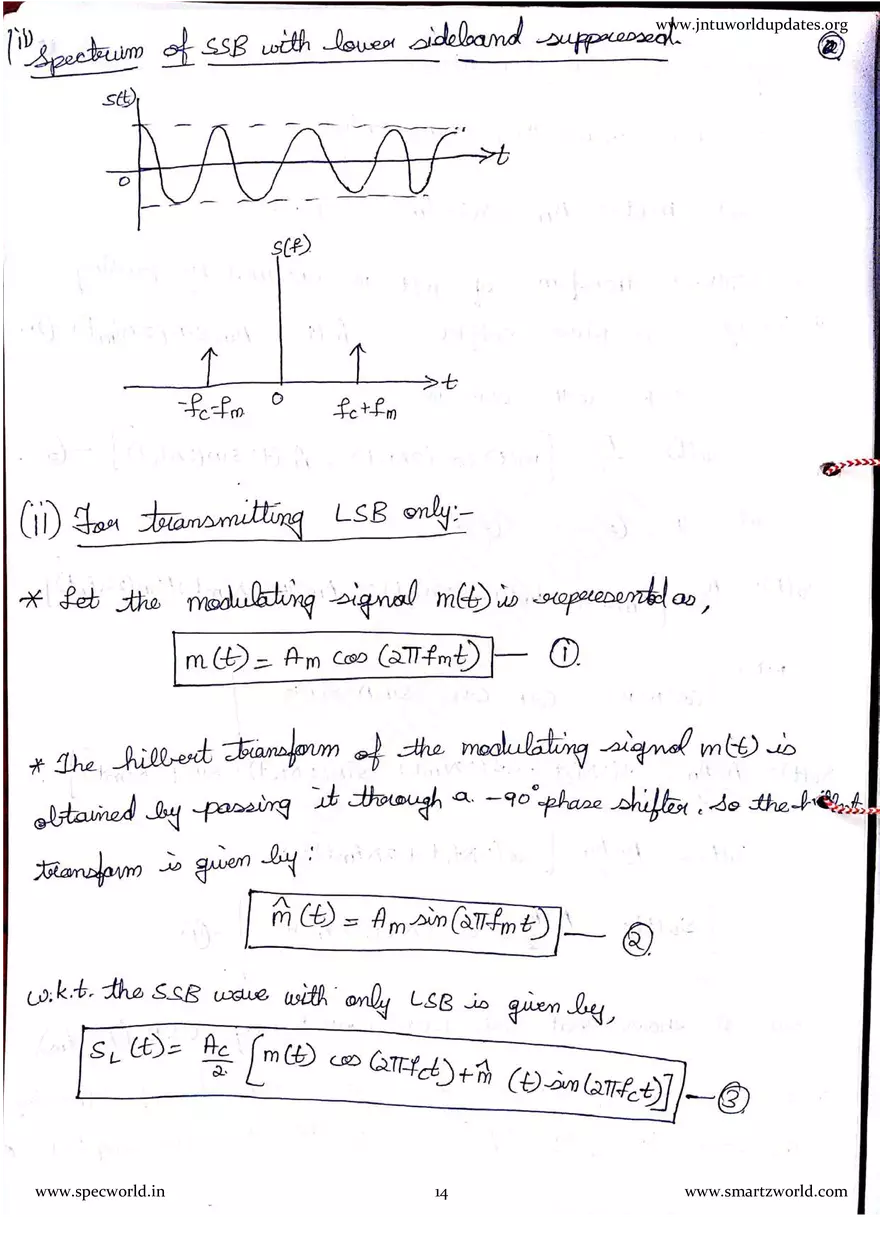 www.jntuworldupdates.org
(ii) Spectrum of SSB with lower sideband suppressed.
2
S(t)
t
0
S(f)
t
-fc-fm 0 fc+fm
(ii) For transmitting LSB only:-
* Let the modulating signal m(t) is represented as,
m(t) = Am cos (2πfmt) — ①.
* The hilbert transform of the modulating signal m(t) is
obtained by passing it through a -90° phase shifter. So the hilbert
transform is given by:
m̂(t) = Am sin(2πfmt) — ②.
w.k.t. the SSB wave with only LSB is given by,
SL(t) = Ac/2 [m(t) cos (2πfct) + m̂ (t) sin(2πfct)] — ③
www.specworld.in 14 www.smartzworld.com